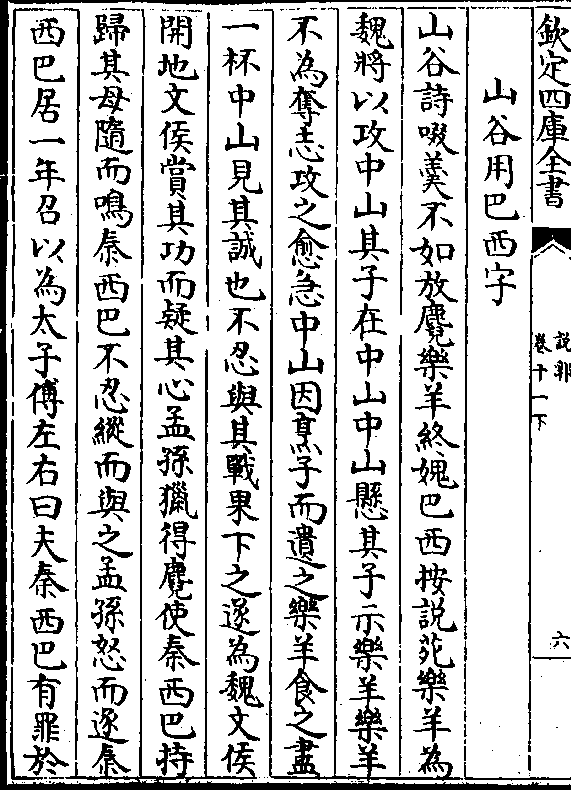 欽定四庫全書
說郛
卷十一下
六
山谷用巴西字
山谷詩啜羹不如放麑樂羊終媿巴西按說苑樂羊為
魏將以攻中山其子在中山中山懸其子示樂羊樂羊
不為奪志攻之愈急中山因烹子而遺之樂羊食之盡
一杯中山見其誠也不忍與其戰果下之遂為魏文侯
開地文侯賞其功而疑其心孟孫獵得麑使秦西巴持
歸其母隨而鳴秦西巴不忍縱而與之孟孫怒而逐秦
西巴居一年召以為太子傅左右曰夫秦西巴有罪於